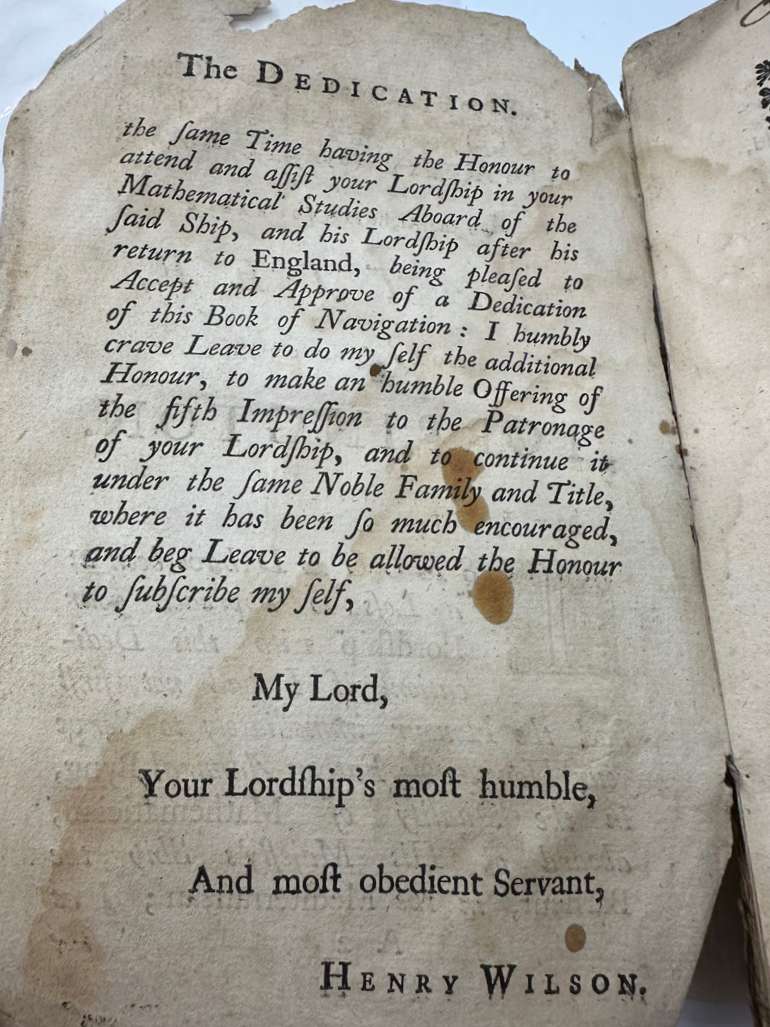 The DEDICATION.
the ſame Time having the Honour to
attend and aſſiſt your Lordſhip in your
Mathematical Studies Aboard of the
ſaid Ship, and his Lordſhip after his
return to England, being pleaſed to
Accept and Approve of a Dedication
of this Book of Navigation : I humbly
crave Leave to do my ſelf the additional
Honour, to make an humble Offering of
the fifth Impreſſion to the Patronage
of your Lordſhip, and to continue it
under the ſame Noble Family and Title,
where it has been ſo much encouraged,
and beg Leave to be allowed the Honour
to ſubſcribe my ſelf,
My Lord,
Your Lordſhip's moſt humble,
And moſt obedient Servant,
HENRY WILSON.